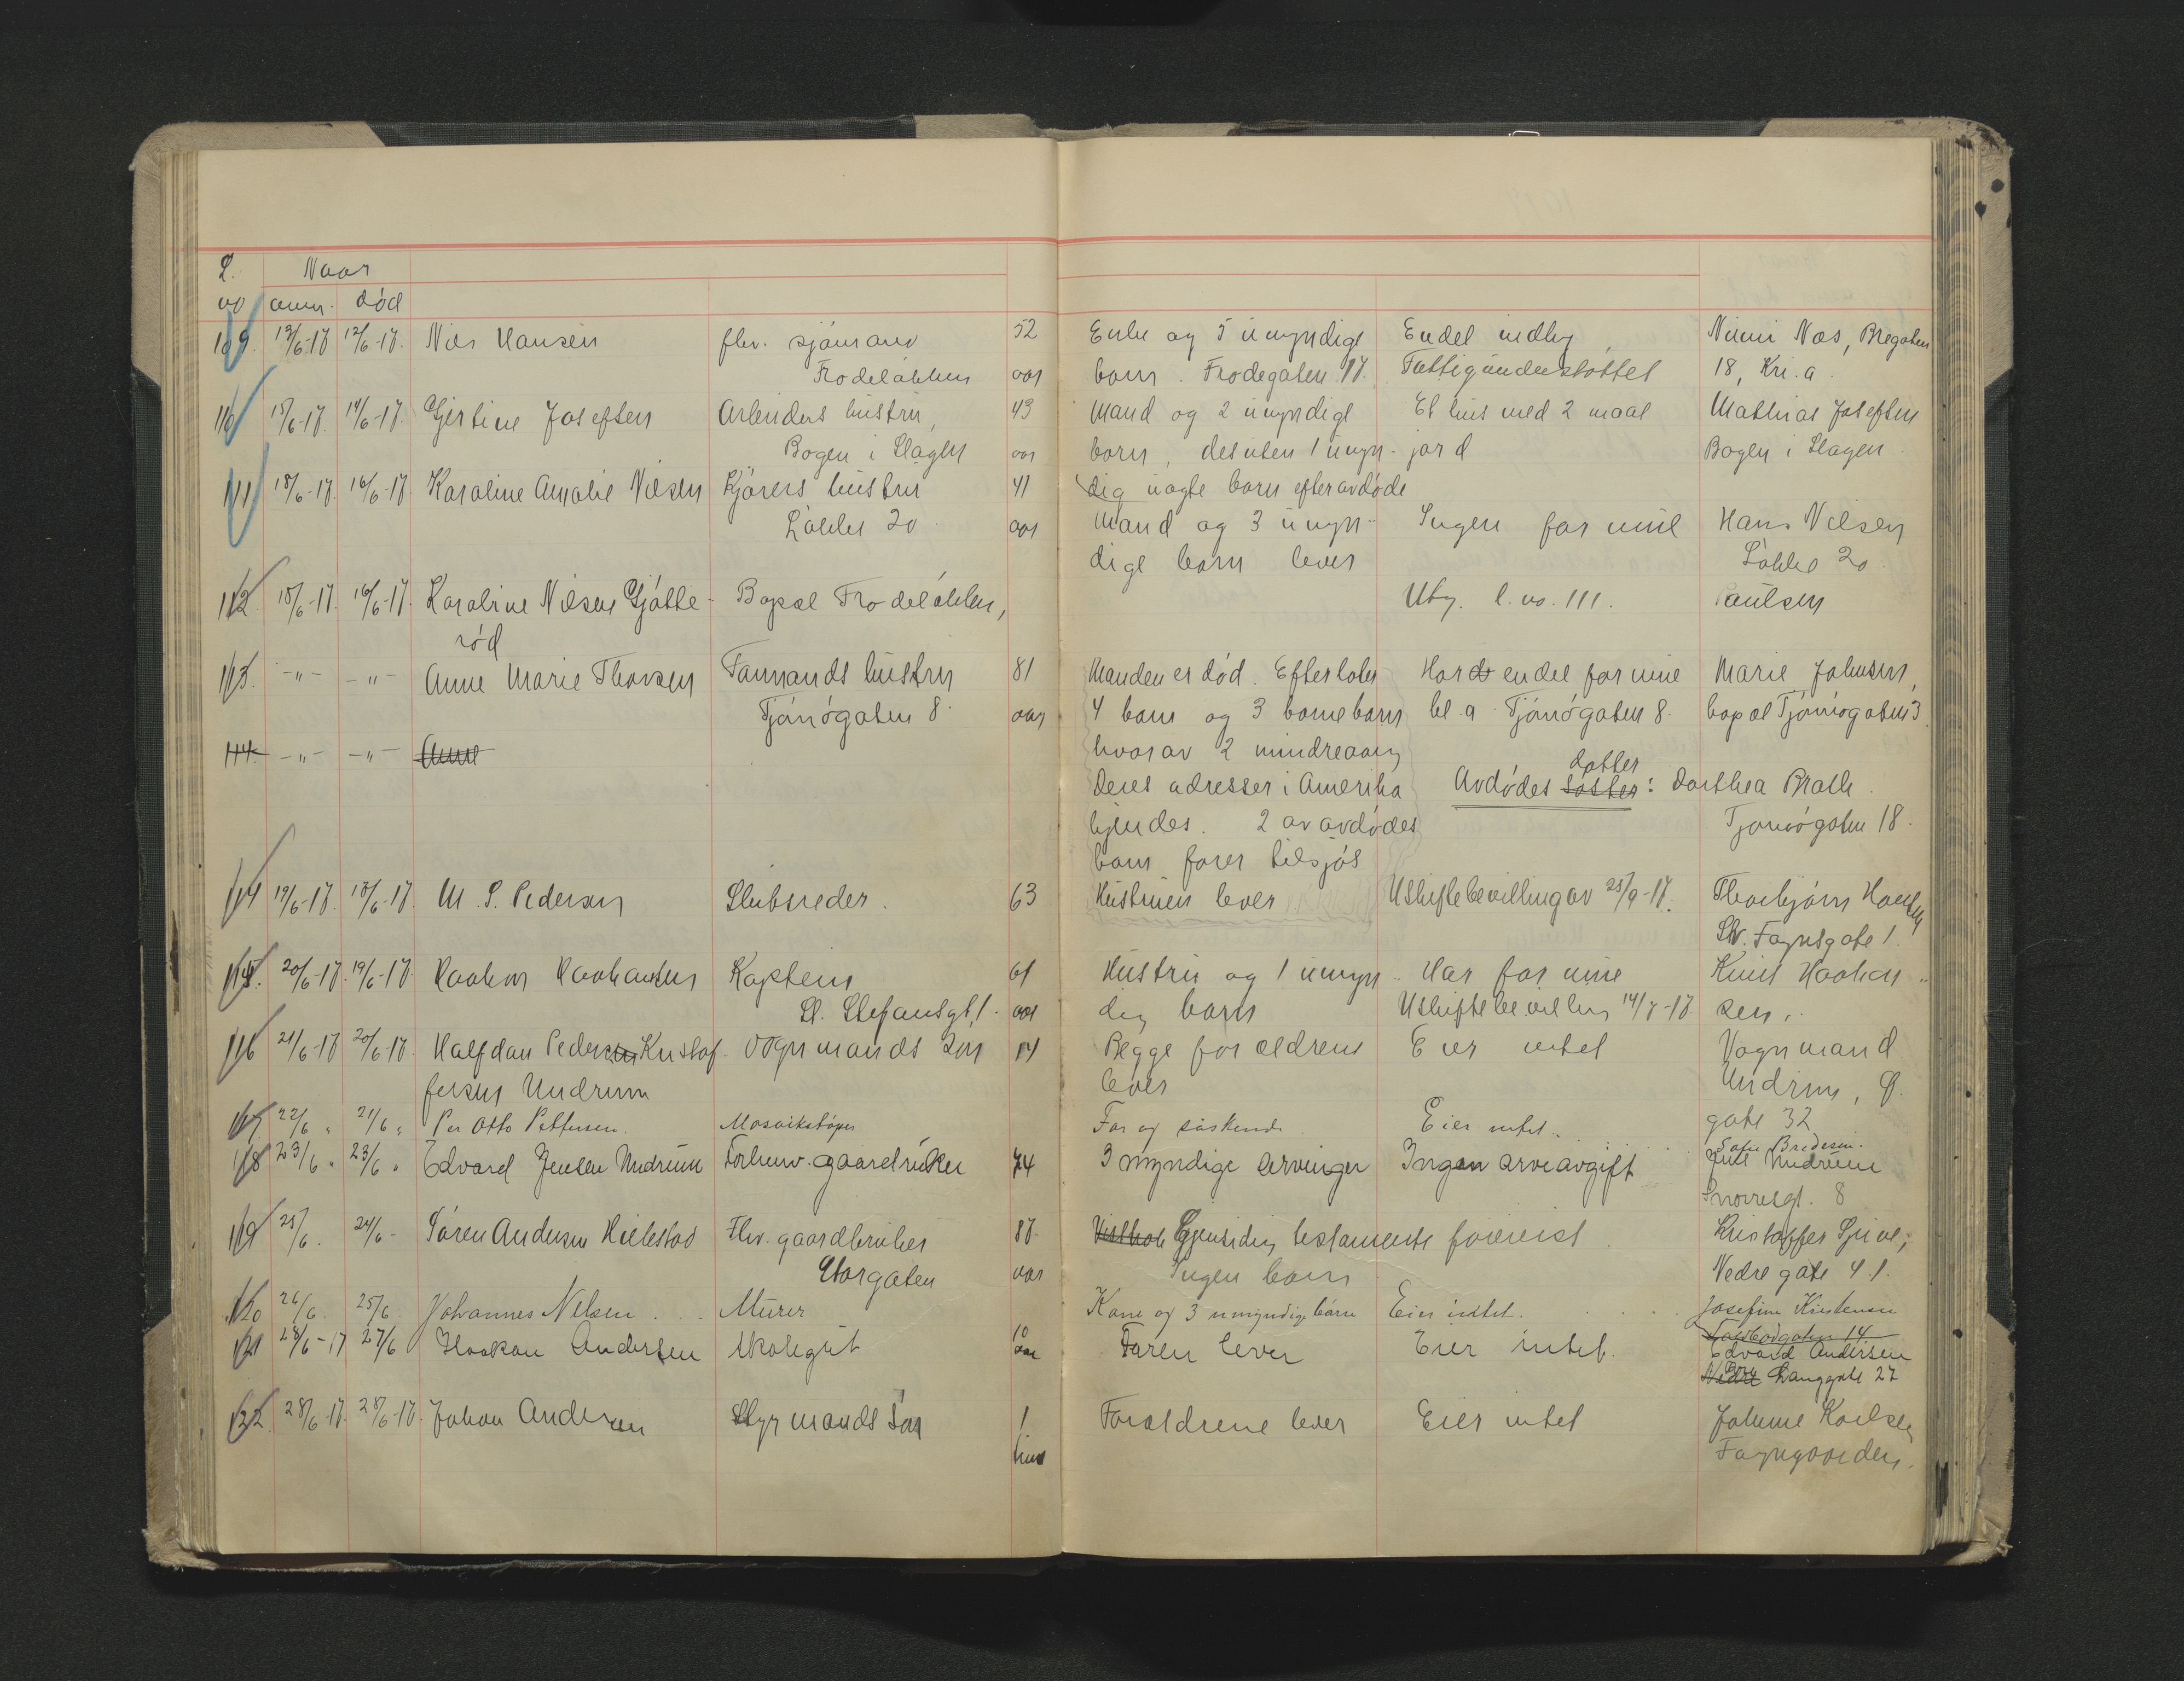 L. Naar
no anm. død
109. 13/6-17 12/6-17. Nils Hansen fhv. sjømand 52 Enke og 5 umyndige Endel indbo, Næss, Bregaten
Frodeløkken aar barn. Frodegaten 17. Fattigunderstøttet 18, Kr.a.
110 15/6-17. 14/6-17. Gjertine Josefsen Arbeiders hustru, 43 Mand og 2 umyndige Et hus med 2 maal Mathias Josefsen
Bogen i Slagen aar barn, desuten 1 umyn- jord Bogen i Slagen
111 18/6-17. 16/6-17. Karoline Amalie Nilsen Kjørers hustru 41 dig uægte barn efter avdøde
Løkke 20 aar Mand og 3 umyn- Ingen formue Hans Nilsen
dige barn lever Løkke 20.
112. 18/6-17. 16/6-17. Karoline Nilsen Gjøtte- Bopæl Frodeløkken, Utg. l. no. 111. Paulsen
rød
113. -"- -"- Anne Marie Thorsen Tømmands hustru 81 Manden er død. Efterlater Har endel formue Marie Johnsen,
Tjømøgaten 8. aar 4 barn og 3 barnebarn bl.a. Tjømøgaten 8. bopæl Tjømøgaten 3
114. -"- -"- Anne hvorav 2 mindreaarig
datter
Deres adresser i Amerika Avdødes søster: Dorthea Bratli.
kjendes. 2 av avdødes Tjømøgaten 18.
barn farer tilsjøs
114 19/6-17. 18/6-17. M. S. Pedersen Skibsreder. 63 Hustruen lever Uskiftebevilling av 25/9-17. Thorbjørn
St. Fayesgate 1.
115. 20/6-17. 19/6-17 Haakon Haakonsen Kaptein 61 Hustru og 1 umyn- Har formue Knut Haakon-
St. Stefansgt. 1. aar dig barn Uskiftebevilling 14/8-17. sen.
116 21/6-17 20/6-17. Halfdan Pedersen Kristof- Vognmands søn 14 Begge forældrene Eier intet Vognmand
fersen Undrum lever Undrum, Ø.
117. 22/6 " 21/6 " Per Otto Pettersen. Mosaikstøper Far og søskende Eier intet. gate 32
118 23/6 " 23/6 " Edvard Jensen Undrum Forhenv. gaardbruker 74 3 myndige arvinger Ingen arveavgift Sofie Bredesen.
Jens Undrum
Snorresgt. 8
119 25/6. 24/6- Søren Andersen Hillestad Fhv. gaardbruker 87. Gjensidig testamente forevist. Kristoffer Gjine;
Storgaten aar Ingen barn Nedre gate 41.
120 26/6. 25/6. Johannes Nilsen. Murer Kone og 3 umyndige børn Eier intet. Josefine Kristensen
121 28/6-17 27/6 Haakon Andersen Skolegut 10 aar Faren lever Eier intet. Tollbodgaten 14
Edvard Andersen
Nedre Øvre Langgate 27
122. 28/6-17. 28/6-17. Johan Andersen Styrmands søn 1 Forældrene lever Eier intet Johanne Karlsen
time Fayegaarden.